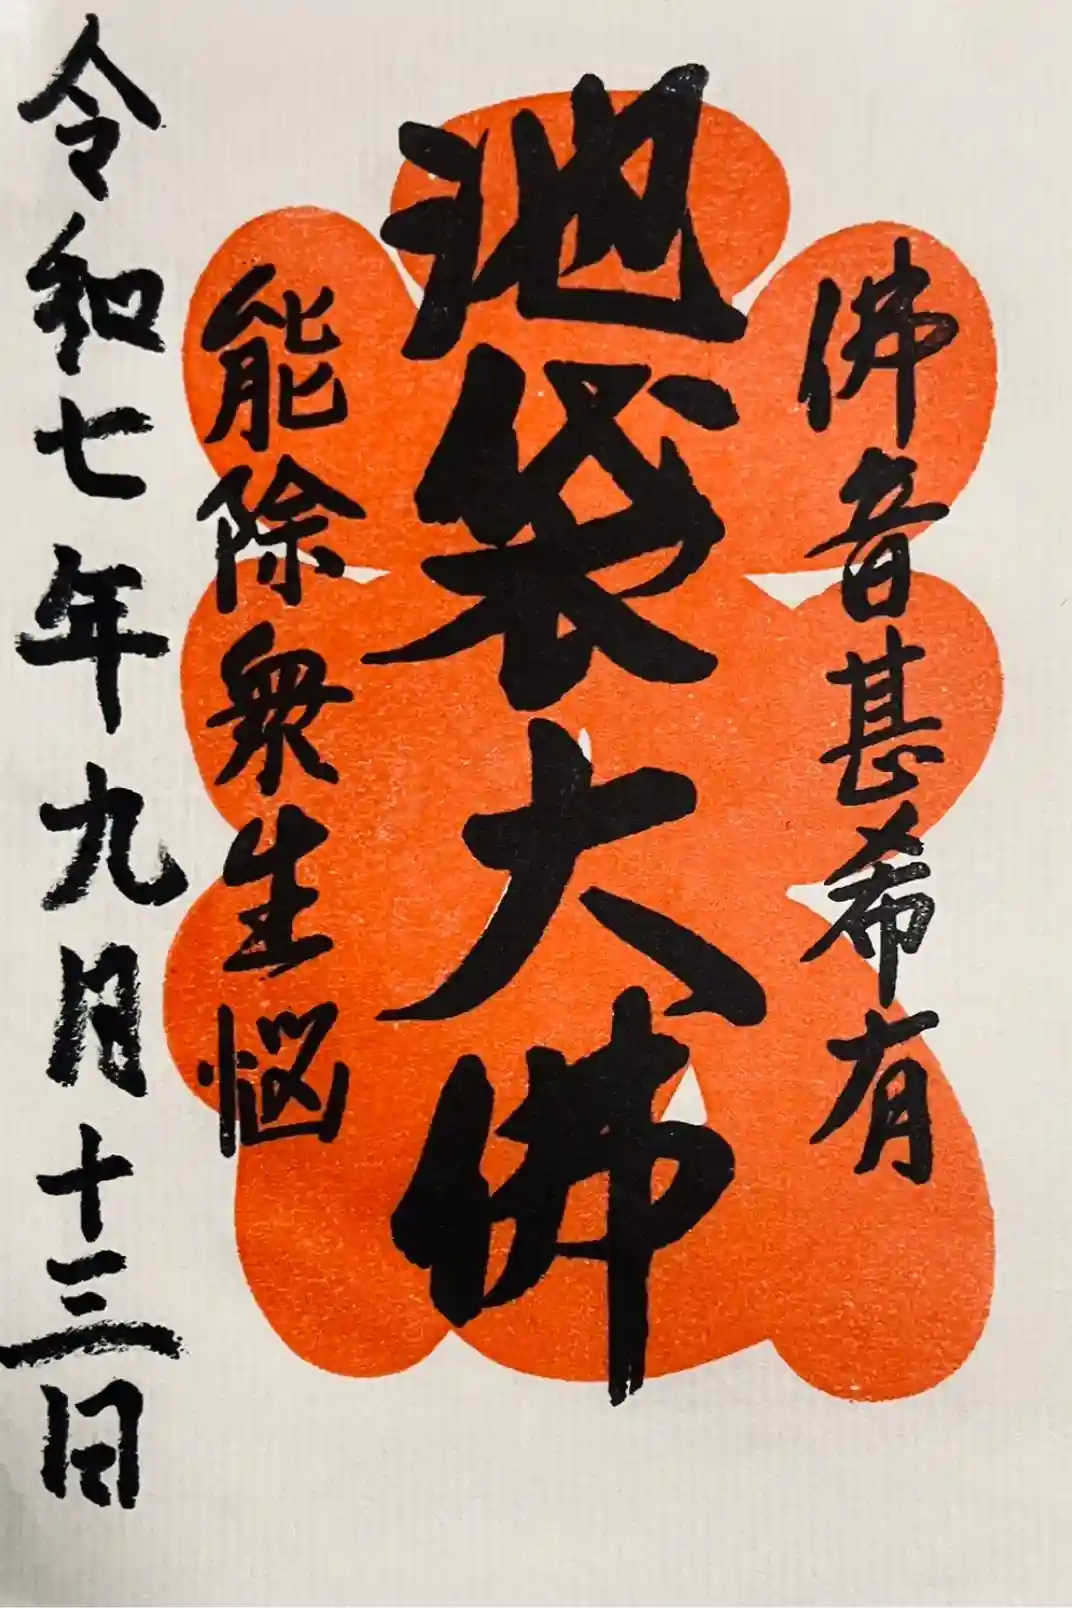 佛音甚希有
池袋大佛
能除衆生悩
令和七年九月十三日